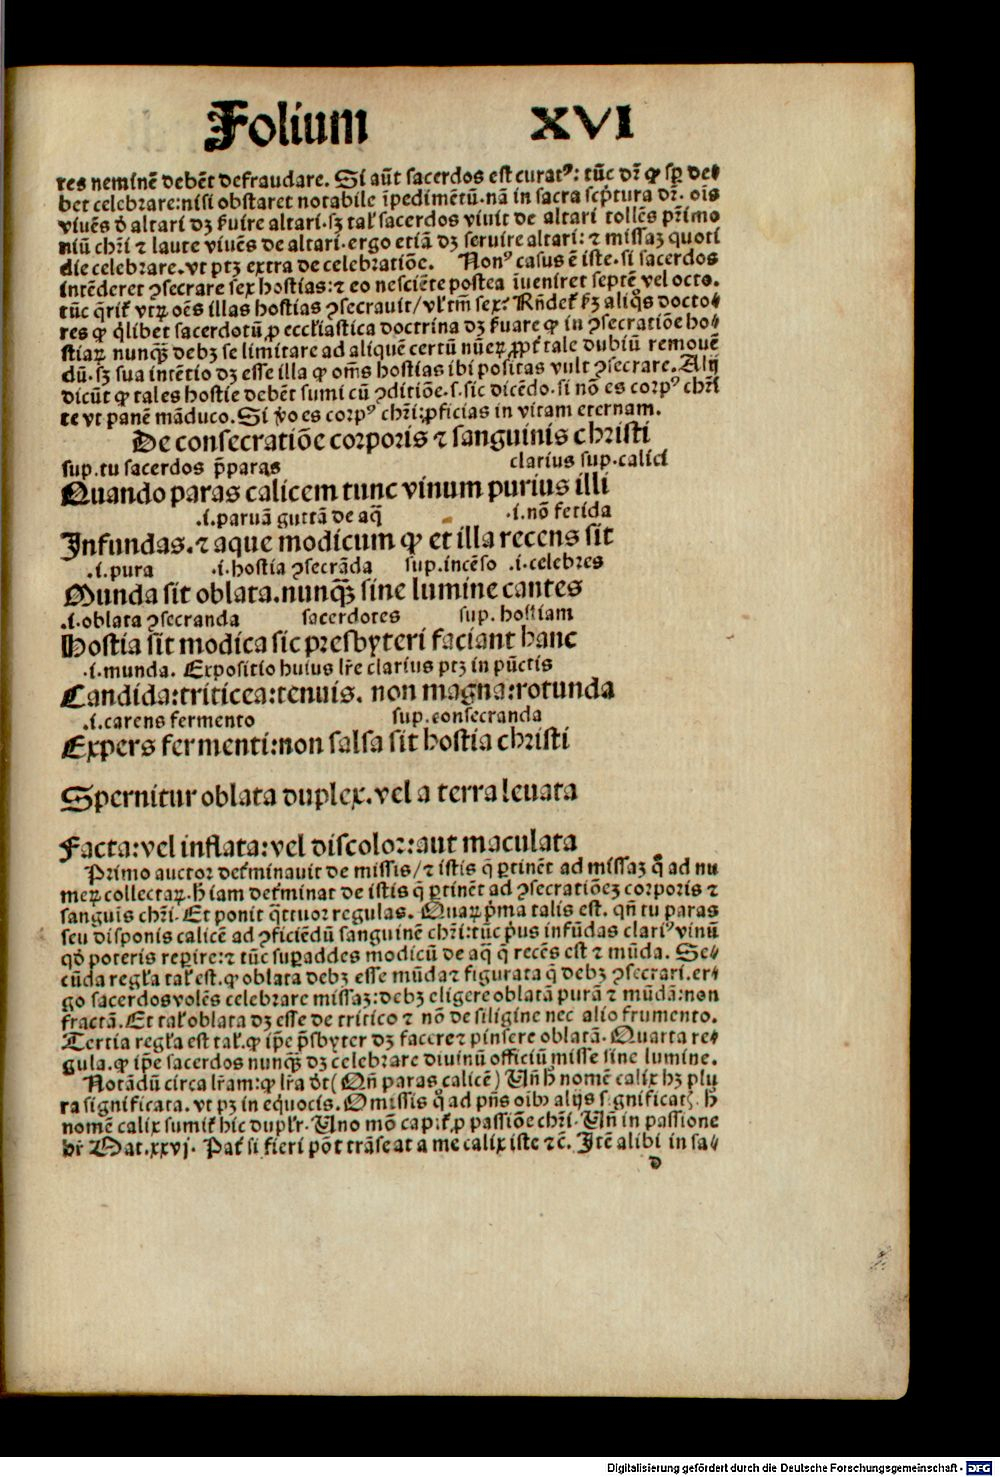 Folium XVI
res neminē debēt defraudare. Si aūt sacerdos est curatꝰ: tūc dr̄ ꝙ sꝑ de⸗
bet celebrare: nisi obstaret notabile īpedimētū. nā in sacra scptura dr̄. oīs
viuēs ð altari dꝫ ẜuire altari. sꝫ tal̕ sacerdos viuit de altari tollēs pr̄imo
niū chr̄i ⁊ laute viuēs de altari. ergo etiā dꝫ seruire altari: ⁊ missaꝫ quoti
die celebrare. vt ptꝫ extra de celebratiōe. Nonꝰ casus ē iste. si sacerdos
intēderet ꝯsecrare sex hostias: ⁊ eo nesciēte postea īueniret septē vel octo.
tūc q̄rit̕ vtꝝ oēs illas hostias ꝯsecrauit / vl̕ tm̄ sex: Rn̄det̕ ẜꝫ aliq̄s docto⸗
res ꝙ q̄libet sacerdotū ꝓ eccl̕iastica doctrina dꝫ ẜuare ꝙ in ꝯsecratiōe ho⸗
stiaꝝ nunqꝫ̄ debꝫ se limitare ad aliquē certū nūeꝝ ꝓpt̕ tale dubiū remouē
dū. sꝫ sua intētio dꝫ esse illa ꝙ om̄s hostias ibi positas vult ꝯsecrare. Alij
dicūt ꝙ tales hostie debēt sumi cū ꝯditiōe. s. sic dicēdo. si nō es corpꝰ chr̄i
te vt panē māduco. Si v̊o es corpꝰ chr̄i: ꝓficias in vitam eternam.
De consecratiōe corporis ⁊ sanguinis christi
sup. tu sacerdos p̄paras clarius sup. calici
Quando paras calicem tunc vinum purius illi
.i. paruā guttā de aq̄ .i. nō fetida
Infundas. ⁊ aque modicum ꝙ et illa recens sit
.i. pura .i. hostia ꝯsecrāda sup. incēso .i. celebres
Munda sit oblata. nunqꝫ̄ sine lumine cantes
.i. oblata ꝯsecranda sacerdotes sup. hostiam
Hostia sit modica sic presbyteri faciant hanc
.i. munda. Expositio huius lr̄e clarius ptꝫ in pūctis
Candida: triticea: tenuis. non magna: rotunda
.i. carens fermento sup. consecranda
Expers fermenti: non salsa sit hostia christi
Spernitur oblata duplex. vel a terra leuata
Facta: vel inflata: vel discolor: aut maculata
Primo auctor det̕minauit de missis / ⁊ istis q̄ ꝑtinēt ad missaꝫ q̊ ad nu
meꝝ collectaꝝ. h̄ iam det̕minat de istis q̄ ꝑtinēt ad ꝯsecratiōeꝫ corporis ⁊
sanguīs chr̄i. Et ponit q̄ttuor regulas. Quaꝝ p̄ma talis est. qn̄ tu paras
seu disponis calicē ad ꝯficiēdū sanguinē chr̄i: tūc pꝰ infūdas clariꝰ vinū
qd̕ poteris reꝑire: ⁊ tūc suꝑaddes modicū de aq̄ q̄ recēs est ⁊ mūda. Se⸗
cūda regl̕a tal̕ est. ꝙ oblata debꝫ esse mūda ⁊ figurata q̄ debꝫ ꝯsecrari. er⸗
go sacerdos volēs celebrare missaꝫ: debꝫ eligere oblatā purā ⁊ mūdā: non
fractā. Et tal̕ oblata dꝫ esse de tritico ⁊ nō de siligine nec alio frumento.
Tertia regl̕a est tal̕. ꝙ ip̄e p̄sbyter dꝫ facere ⁊ pinsere oblatā. Quarta re⸗
gula. ꝙ ip̄e sacerdos nunqꝫ̄ dꝫ celebrare diuinū officiū misse sine lumine.
Notādū circa lr̄am: ꝙ lr̄a dt̕ (Qn̄ paras calicē) Vn̄ h̄ nomē calix hꝫ plu
ra significata. vt pꝫ in equocis. Omissis q̊ ad pn̄s oībꝫ alijs significat̕. h̄
nomē calix sumit̕ hic dupl̕r. Uno mō capit̕ ꝓ passiōe chr̄i. Vn̄ in passione
hr̄ Mat. xxvj. Pat̕ si fieri pōt trāseat a me calix iste ⁊c̄. Itē alibi in sa⸗
d
Digitalisierung gefördert durch die Deutsche Forschungsgemeinschaft - DFG